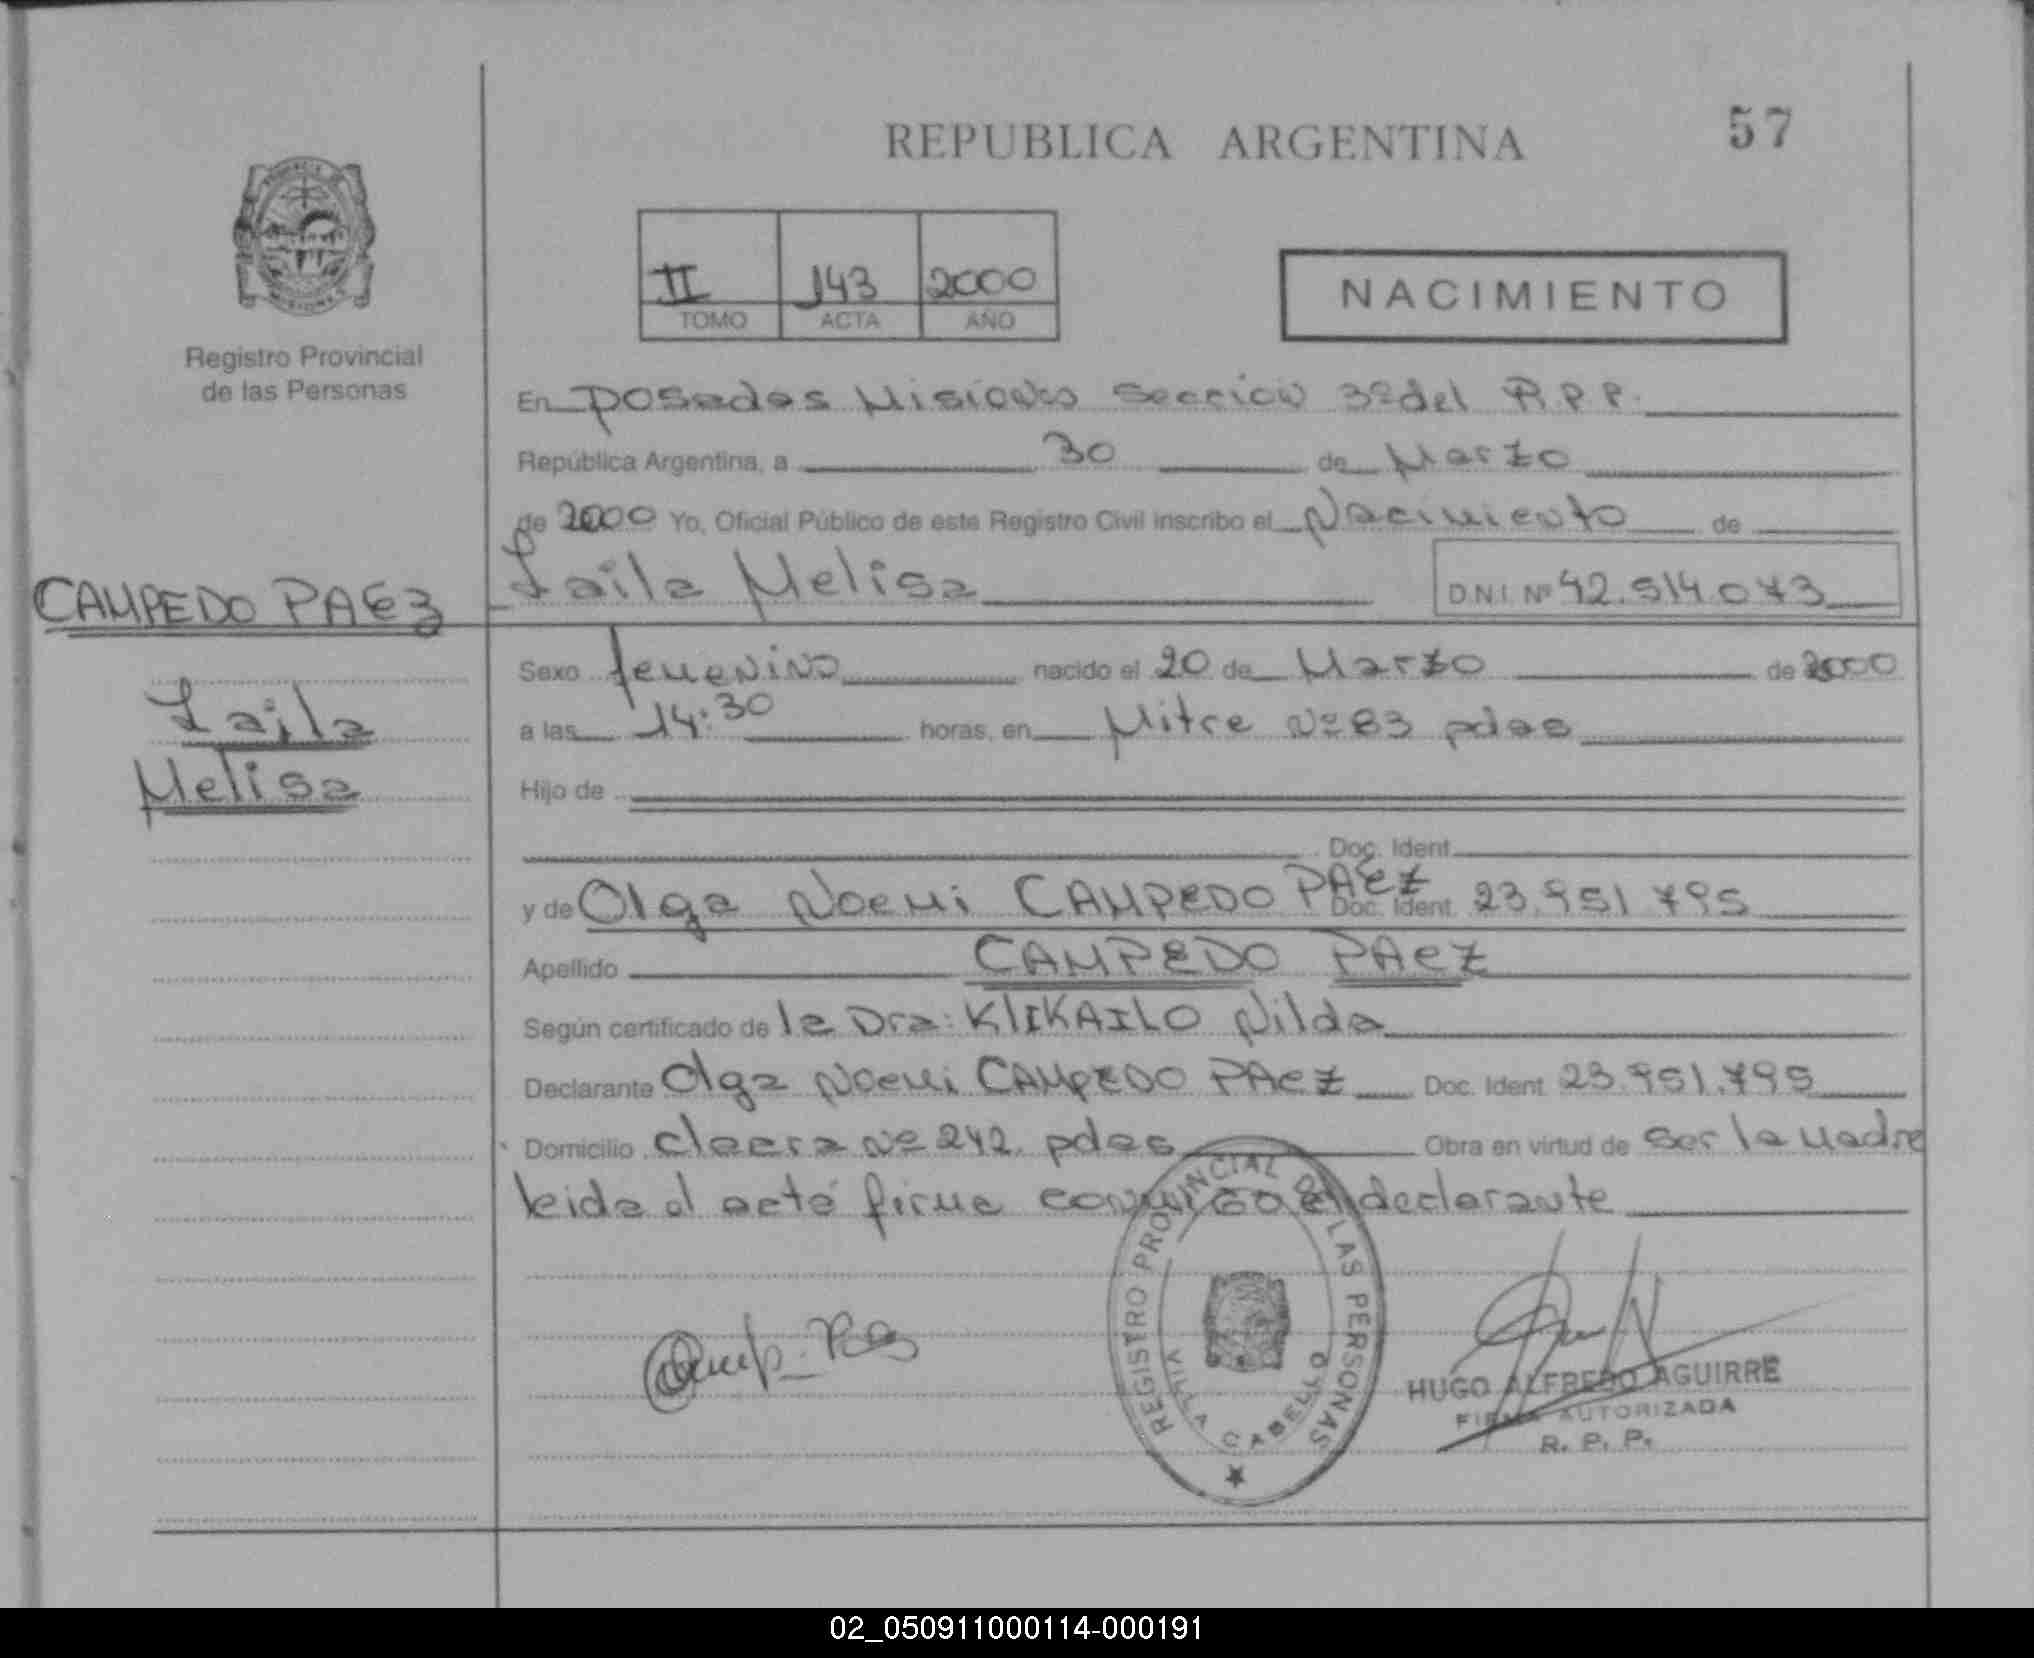 REPUBLICA ARGENTINA
57
II 143 2000
TOMO ACTA AÑO
NACIMIENTO
PROVINCIA DE
MISIONES
Registro Provincial
de las Personas
En Posadas Misiones Seccion 3º del R.P.P.
República Argentina, a 30 de Marzo
de 2000 Yo, Oficial Público de este Registro Civil inscribo el Nacimiento de
CAMPEDO PAEZ
Laila Melisa D.N.I. Nº 42.514.073
Laila
Melisa
Sexo femenino nacido el 20 de Marzo de 2000
a las 14:30 horas, en Mitre Nº 83 pdas
Hijo de
Doc. Ident.
y de Olga Noemi CAMPEDO PAEZ Doc. Ident. 23.951.795
Apellido CAMPEDO PAEZ
Según certificado de la Dra: KLIKAILO Nilda
Declarante Olga Noemi CAMPEDO PAEZ Doc. Ident. 23.951.795
Domicilio Nº 242. pdas Obra en virtud de ser la Madre
leida el acta firma conmigo el declarante
REGISTRO PROVINCIAL DE LAS PERSONAS
VILLA CABELLO
HUGO ALFREDO AGUIRRE
FIRMA AUTORIZADA
R. P. P.
02_050911000114-000191